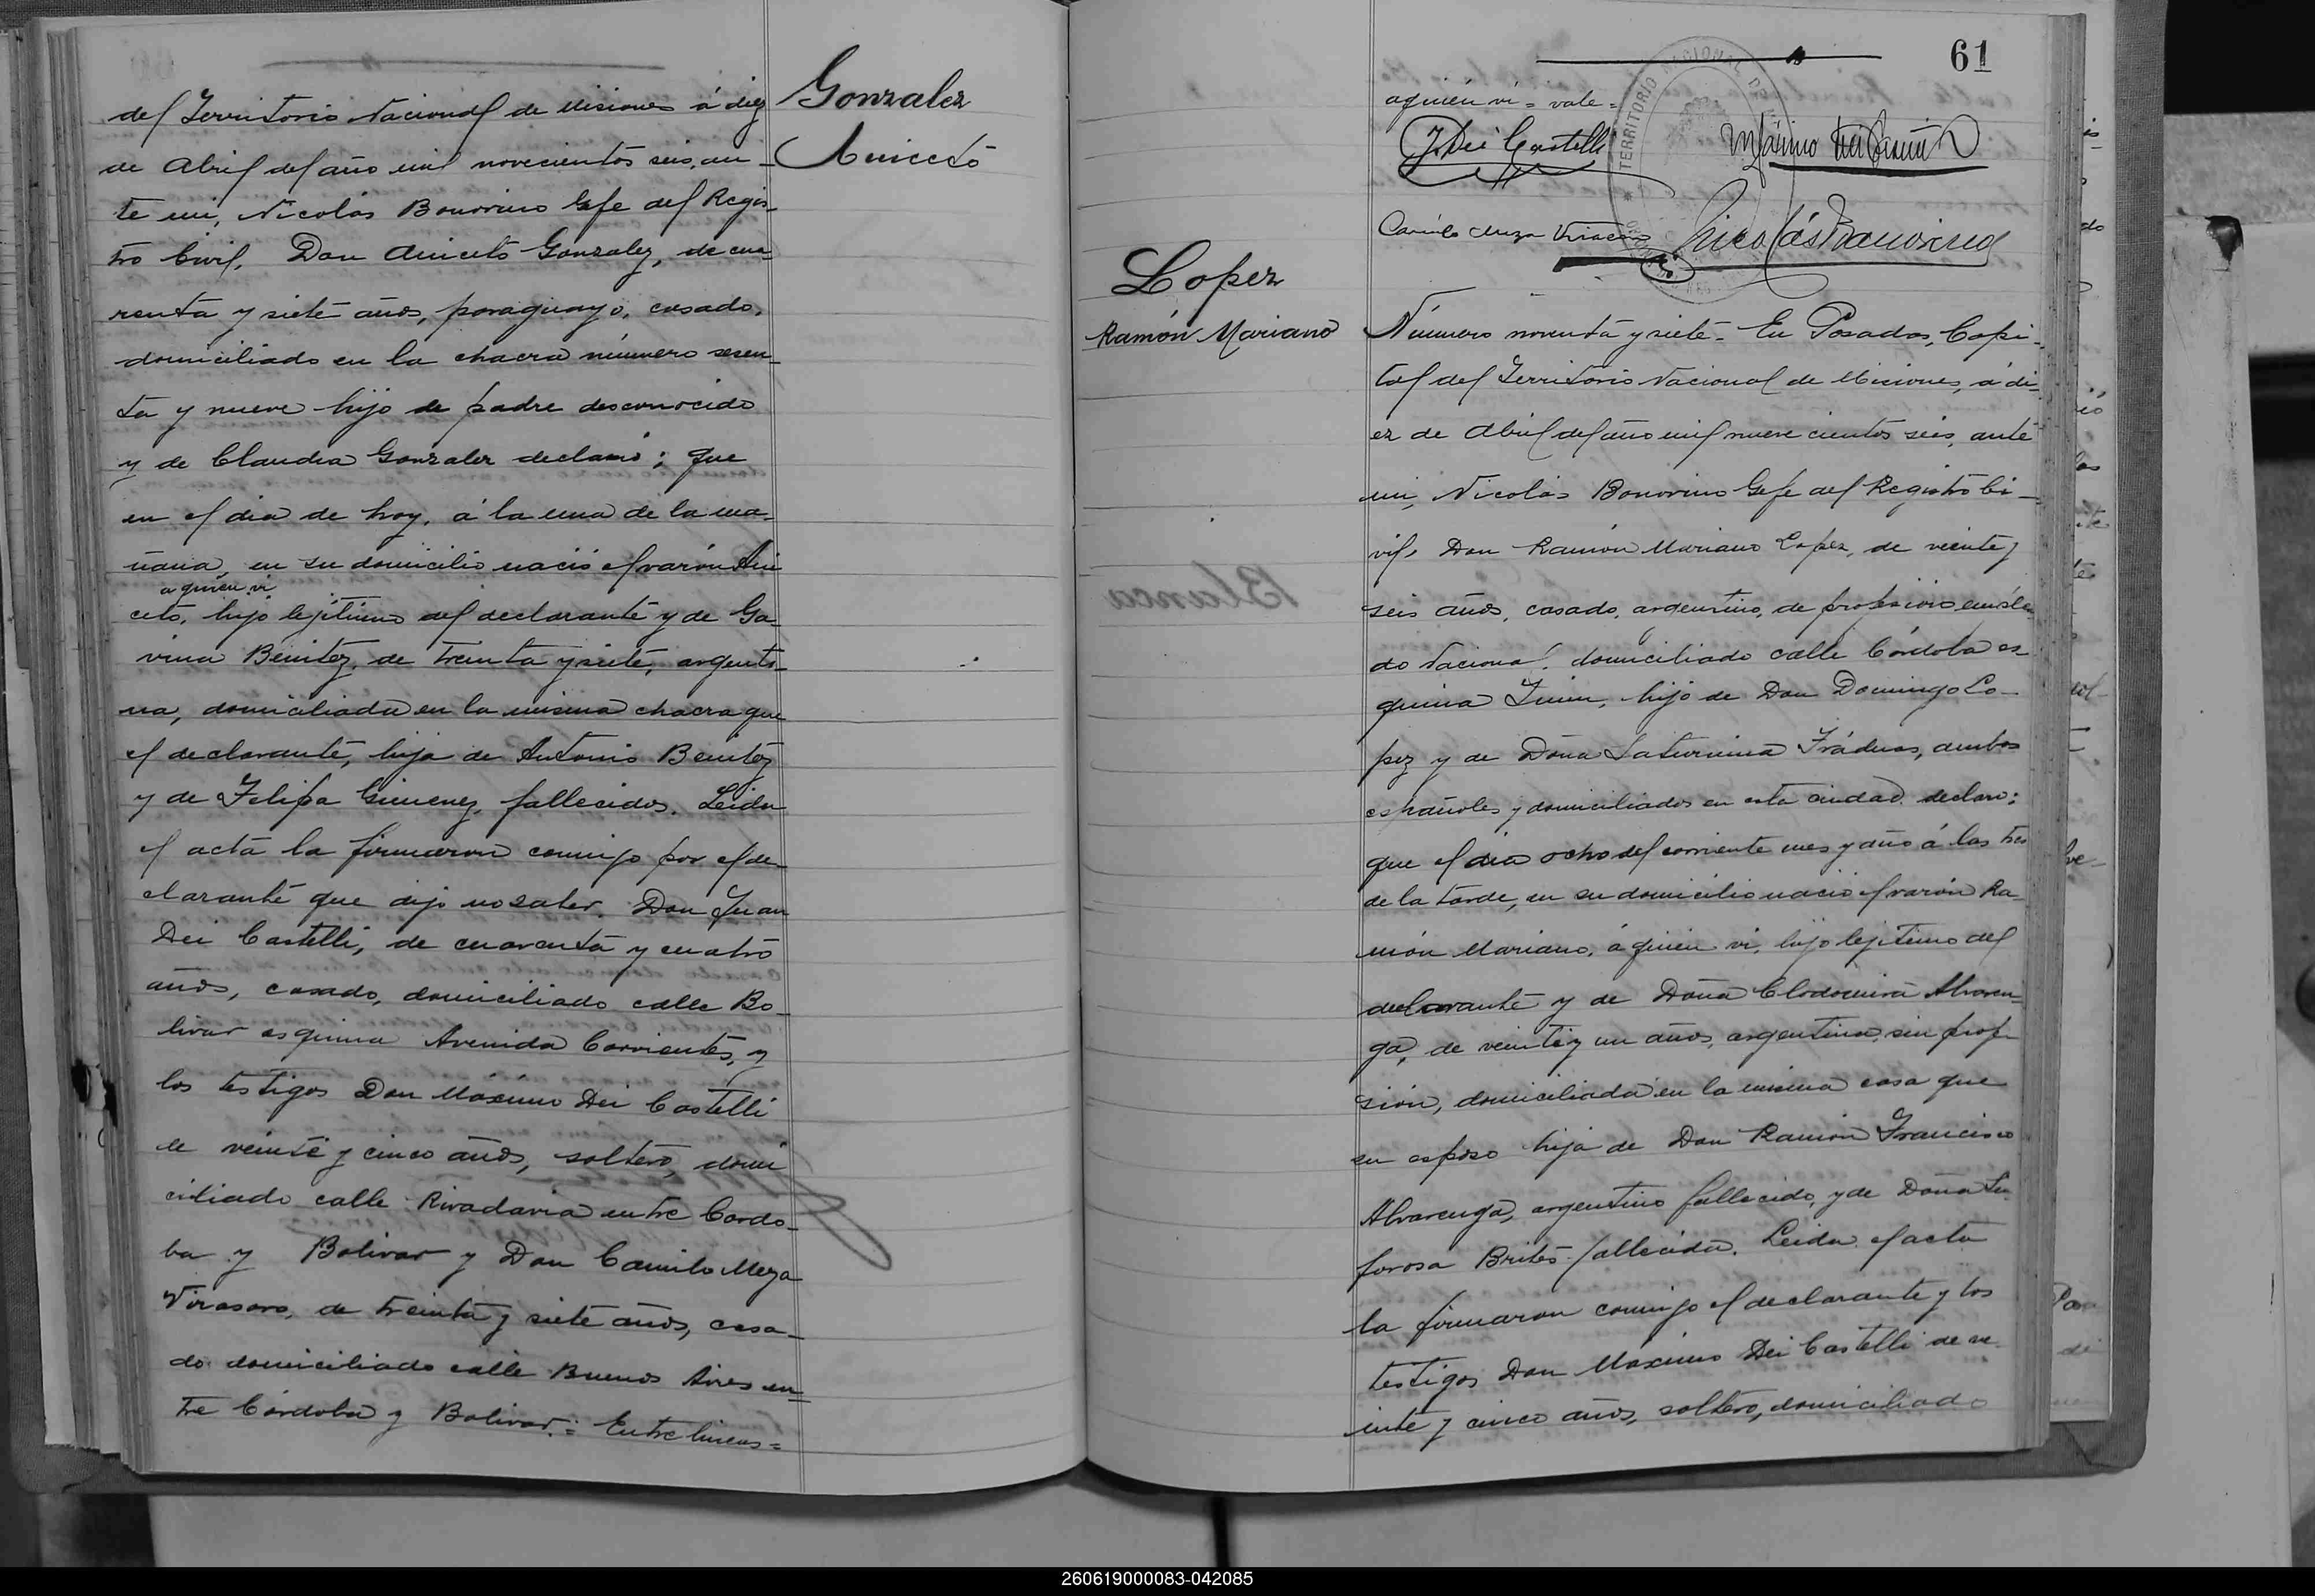 del Territorio Nacional de Misiones á diez
de Abril del año mil novecientos seis, an-
te mi, Nicolás Bonorino Gefe del Regis-
tro Civil, Don Aniceto Gonzalez, de cua
renta y siete años, paraguayo, casado,
domiciliado en la chacra número sesen-
ta y nueve hijo de padre desconocido
y de Claudia Gonzalez declaró; que
en el dia de hoy, á la una de la ma-
ñana, en su domicilio nació el varón Ani
a quien vi
ceto, hijo lejítimo del declarante y de Ga-
vina Benitez, de treinta y siete, argenti-
na, domiciliada en la misma chacra que
el declarante, hija de Antonio Benitez
y de Felipa Gimenez, fallecidos. Leida
el acta la firmaron comigo por el de-
clarante que dijo no saber, Don Juan
Dei Castelli, de cuarenta y cuatro
años, casado, domiciliado calle Bo-
livar esquina Avenida Corrientes, y
los testigos Don Máximo Dei Castelli
de veinte y cinco años, soltero, domi
ciliado calle Rivadavia entre Cordo-
ba y Bolivar y Don Camilo Meza
Virasoro, de treinta y siete años, casa-
do domiciliado calle Buenos Aires en-
tre Córdoba y Bolivar.= Entre lineas=
Gonzalez
Aniceto
61
aquien vi = vale =
J. Dei Castelli
Máximo Dei Castelli
TERRITORIO NACIONAL DE
Camilo Meza Virasoro
Nicolás Bonorino
Lopez
Ramón Mariano
Número noventa y siete- En Posadas, Capi-
tal del Territorio Nacional de Misiones, á di-
ez de Abril del año mil nueve cientos seis, ante
mi, Nicolás Bonorino Gefe del Registro Ci-
vil, Don Ramón Mariano Lopez, de veinte y
seis años, casado, argentino, de profesión emplea
do Nacional, domiciliado calle Córdoba es
quina Junin, hijo de Don Domingo Lo-
pez y de Doña Saturnina ambos
españoles y domiciliados en esta ciudad declaro;
que el dia ocho del corriente mes y año á las tres
de la tarde, en su domicilio nació el varón Ra
món Mariano, á quien vi, hijo lejitimo del
declarante y de Doña Clodomira Alvaren-
ga, de veinte y un años, argentina, sin profe
sión, domiciliada en la misma casa que
su esposo hija de Don Ramón Francisco
Alvarenga, argentino fallecido, y de Doña Sin
forosa Brites fallecida. Leida el acta
la firmaron comigo el declarante y los
testigos Don Maximo Dei Castelli de ve
inte y cinco años, soltero, domiciliado
260619000083-042085